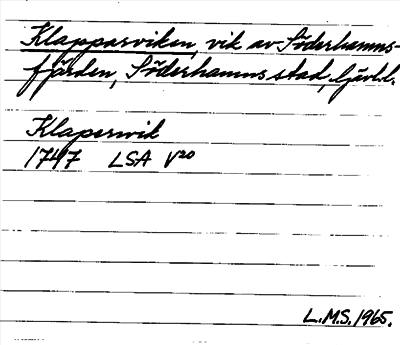 Klapparviken, vik av Söderhamns-
fjärden, Söderhamns stad, Gävlel.
Klaperwik
1747 LSA V20
L.M.S. 1965.